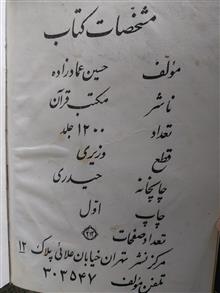 مشخصات کتاب
مؤلف حسین عمادزاده
ناشر مکتب قرآن
تعداد ۱۲۰۰ جلد
قطع وزیری
چاپخانه حیدری
چاپ اول
تعداد صفحات
مرکز نشر تهران خیابان علائی پلاک ۱۲
تلفن مؤلف ۳۰۳۵۴۷